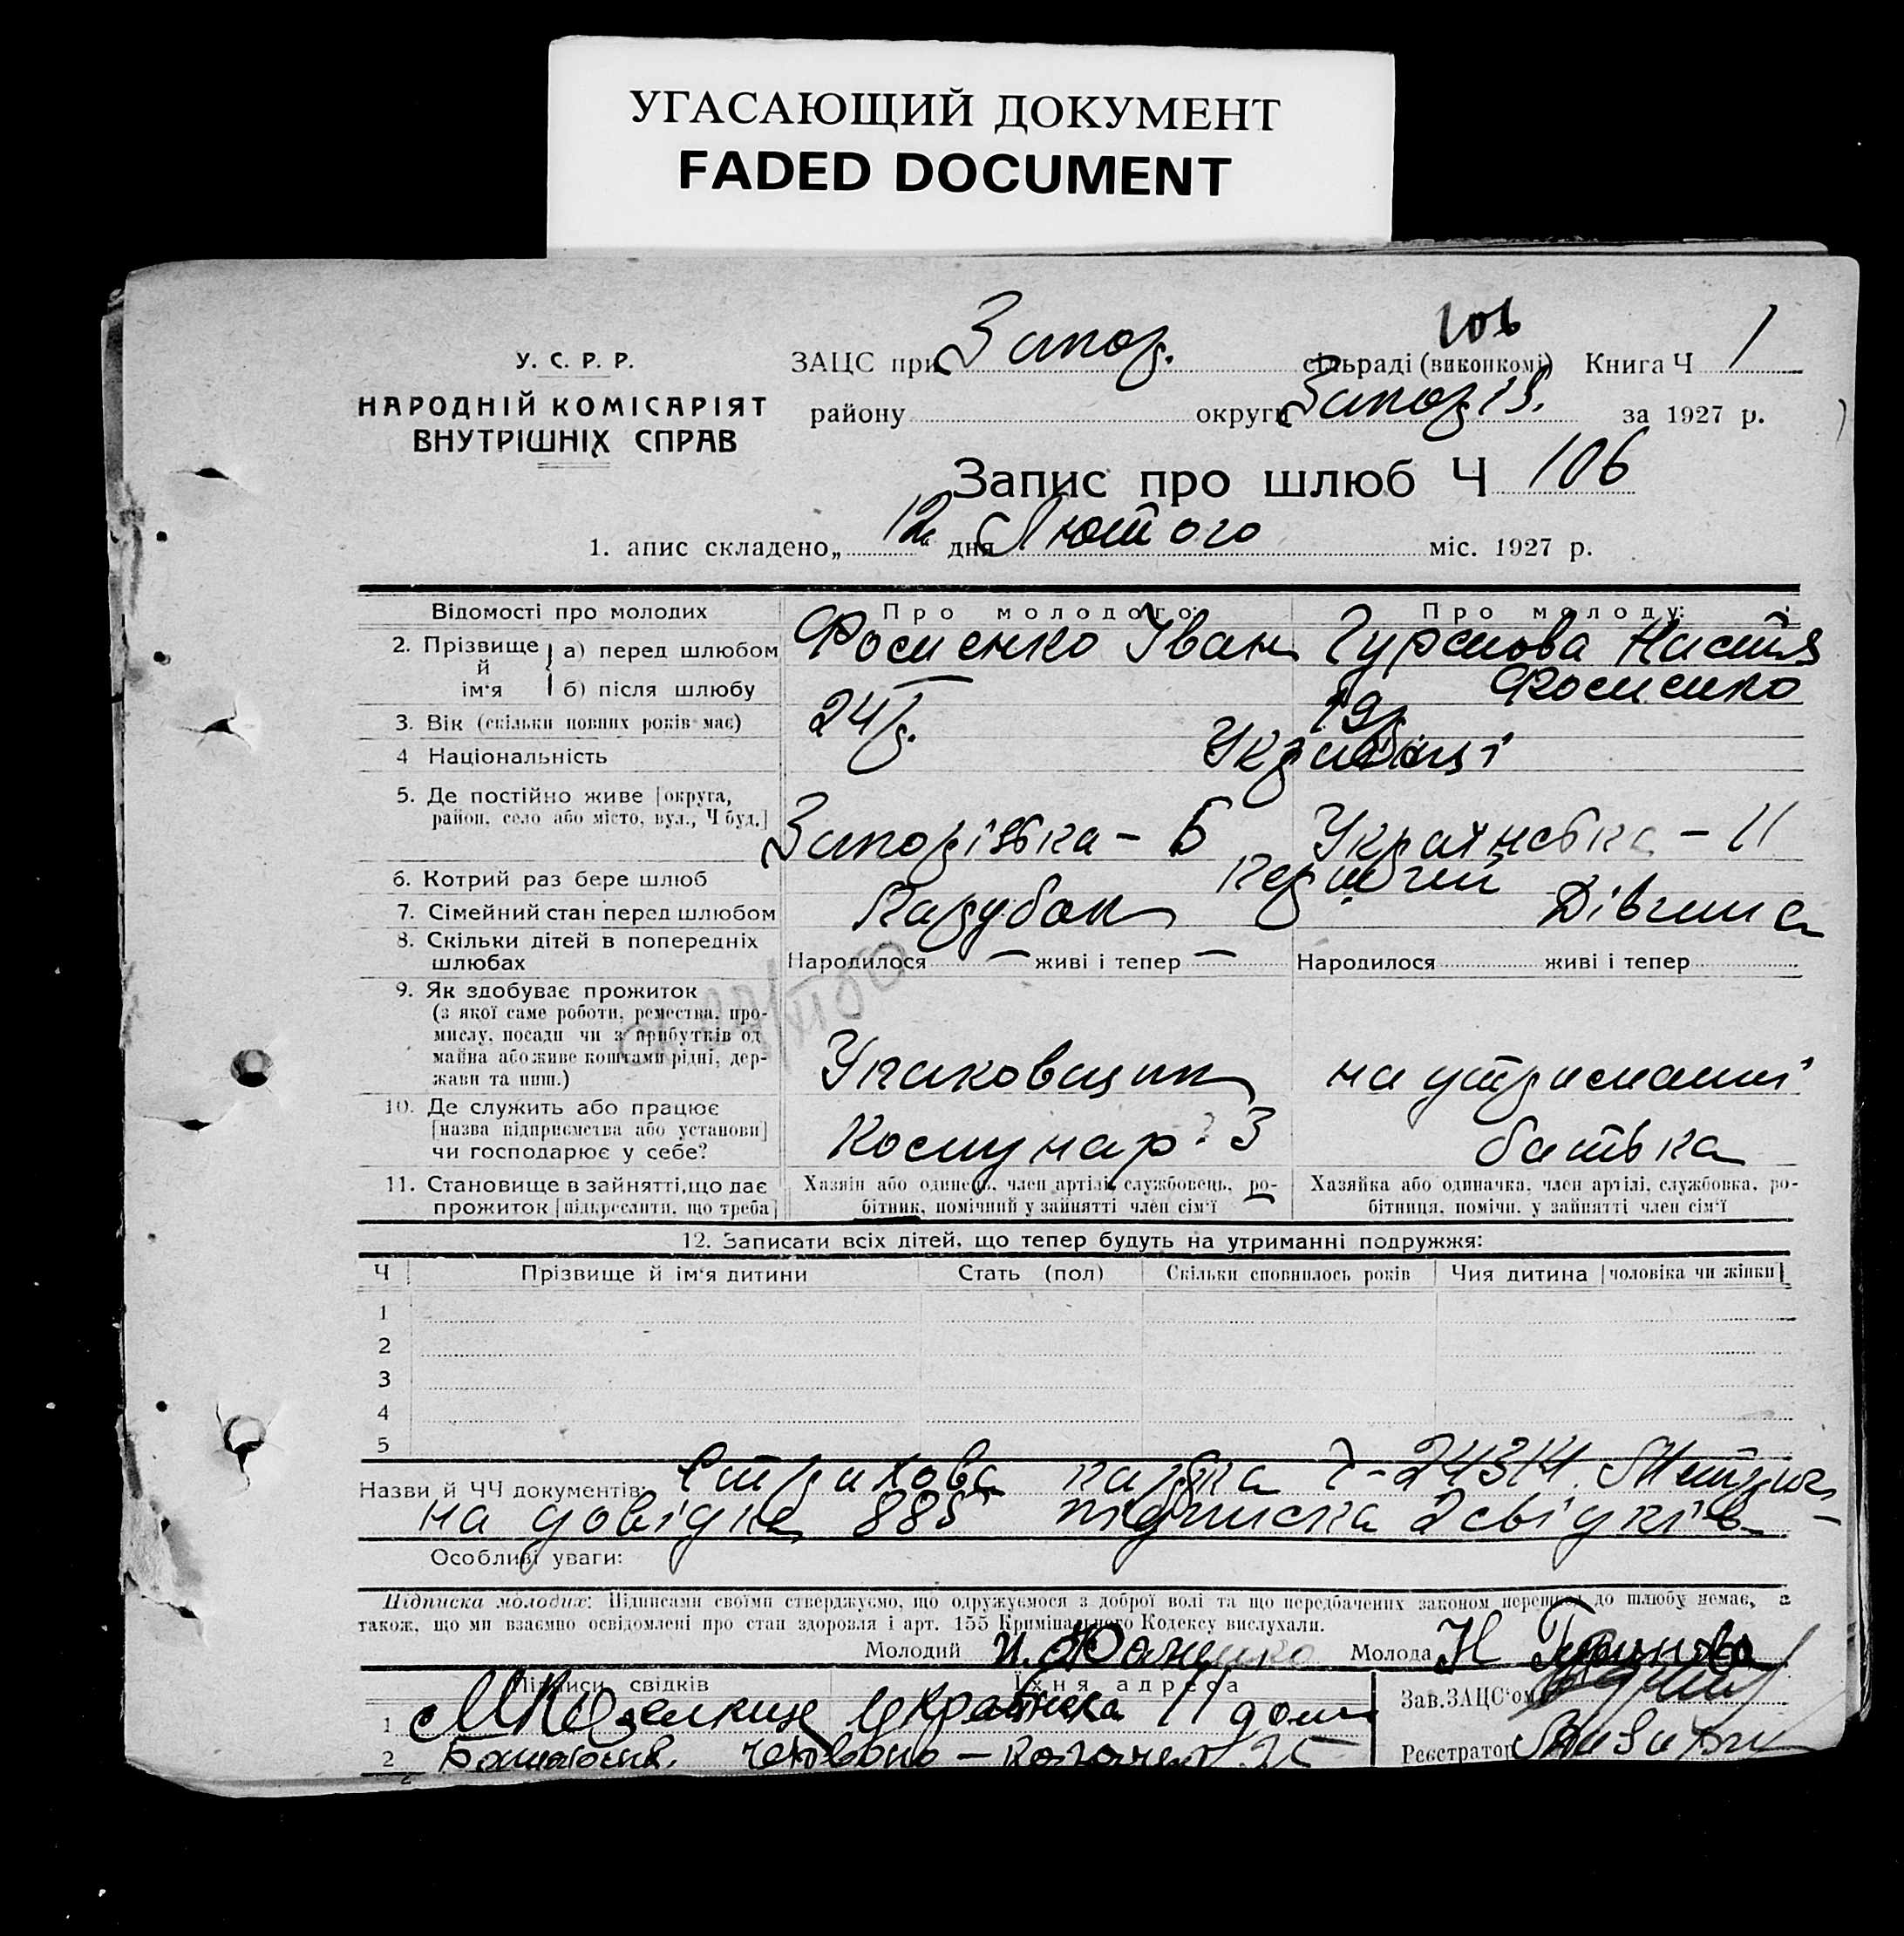 УГАСАЮЩИЙ ДОКУМЕНТ
FADED DOCUMENT
106
У. С. Р. Р.
НАРОДНІЙ КОМІСАРІЯТ
ВНУТРІШНІХ СПРАВ
ЗАЦС при Запор. сільраді (виконкомі) Книга Ч 1
району округи Запоріз. за 1927 р.
Запис про шлюб Ч 106
1. апис складено „ 12 " дня Лютого міс. 1927 р.
Відомості про молодих Про молодого: Про молоду:
2. Прізвище й ім'я а) перед шлюбом Фоменко Іван Гурғова Настя
б) після шлюбу — Фоменко
3. Вік (скільки повних років має) 24 р. 19 р.
4 Національність Українці
5. Де постійно живе [округа, район, село або місто, вул., Ч буд.] Запорізька - Б Українська - 11
6. Котрий раз бере шлюб перший
7. Сімейний стан перед шлюбом Парубок Дівчина
8. Скільки дітей в попередніх шлюбах Народилося — живі і тепер — Народилося живі і тепер
9. Як здобуває прожиток
(з якої саме роботи, ремества, промислу, посади чи з прибутків од майна або живе коштами рідні, держави та инш.) Упаковщик на утриманні
10. Де служить або працює
[назва підприємства або установи]
чи господарює у себе? Комунар. З батька
11. Становище в зайнятті, що дає прожиток [підкреслити, що треба] Хазяїн або одинець, член артілі, службовець, робітник, помічний у зайнятті член сім'ї Хазяйка або одиначка, член артілі, службовка, робітниця, помічн. у зайнятті член сім'ї
12. Записати всіх дітей, що тепер будуть на утриманні подружжя:
Ч Прізвище й ім'я дитини Стать (пол) Скільки сповнилось років Чия дитина [чоловіка чи жінки]
1
2
3
4
5
Назви й ЧЧ документів: Страхова картка Ч-24314. Метрич-
на довідка 885 підписка 2 свідків
Особливі уваги:
Підписка молодих: Підписами своїми стверджуємо, що одружуємося з доброї волі та що передбачених законом перешкод до шлюбу немає, а
також, що ми взаємно освідомлені про стан здоровля і арт. 155 Кримінального Кодексу вислухали.
Молодий И. Фоменко Молода Н
Підписи свідків Їхня адреса Зав. ЗАЦС'ом
1 Українська 11 дом
2 Червоно- Реєстратор